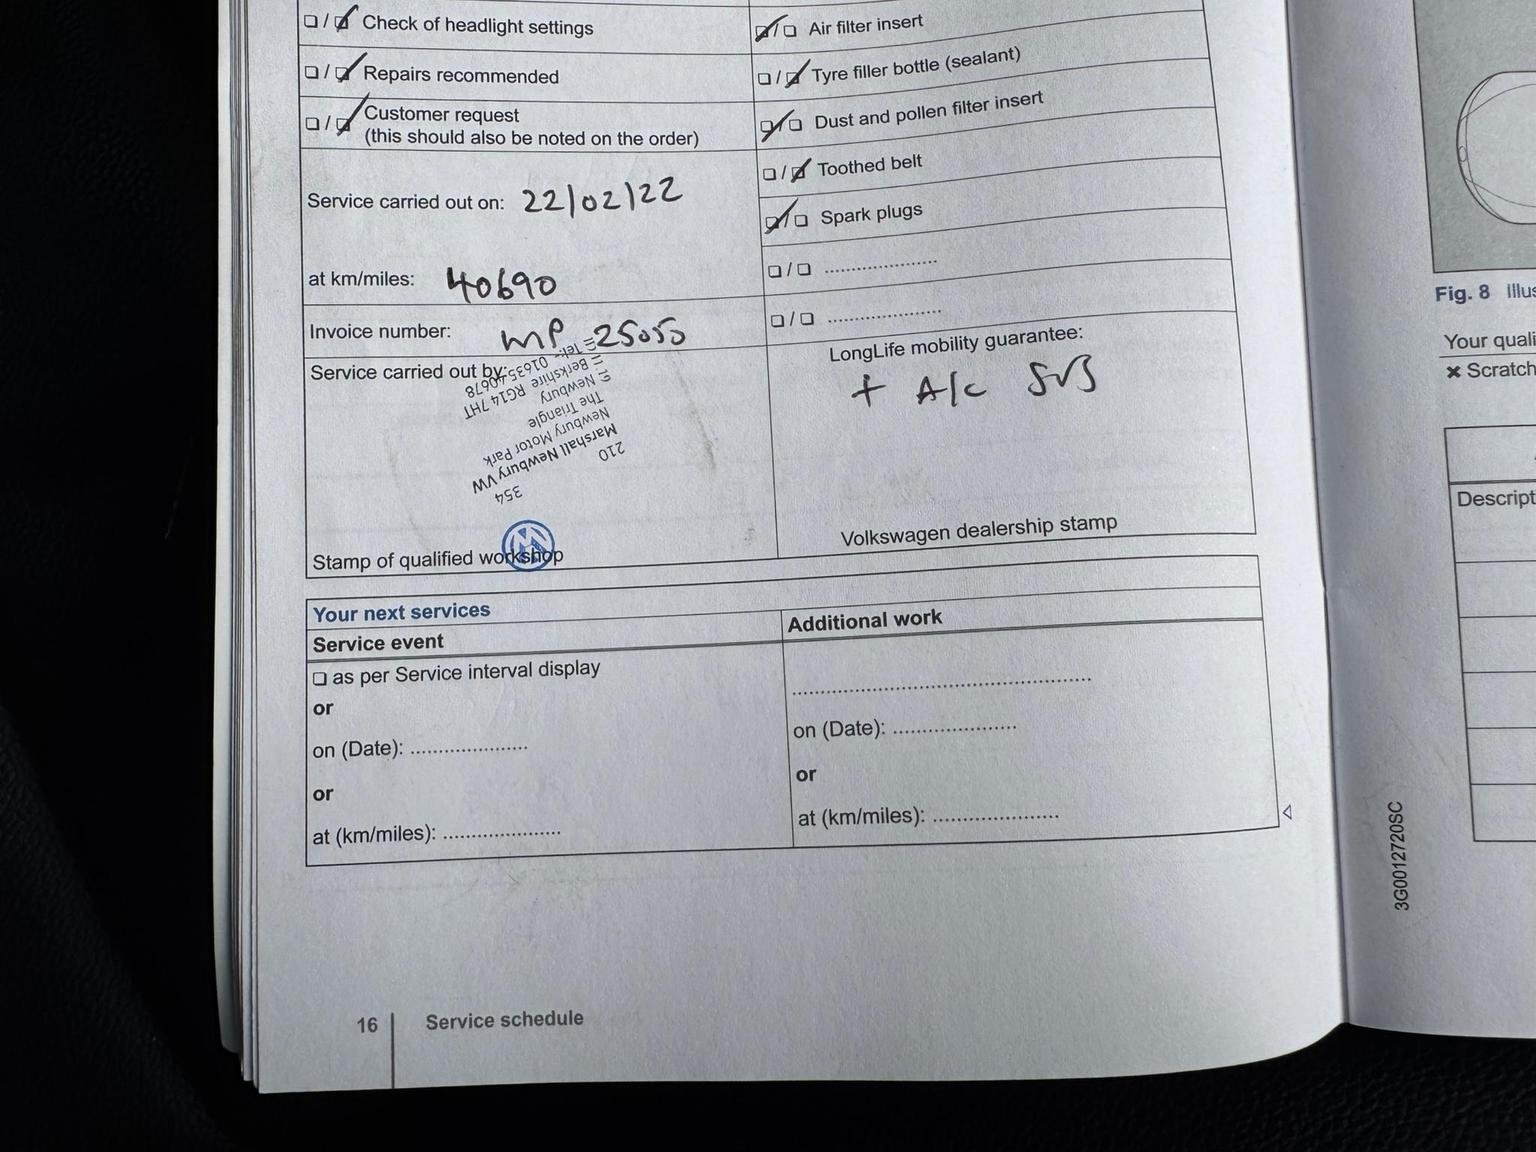 Check of headlight settings
Repairs recommended
Customer request
(this should also be noted on the order)
Service carried out on: 22/02/22
at km/miles: 40690
Invoice number: MP 25050
Service carried out by:
354
210
Marshall Newbury VW
Newbury Motor Park
The Triangle
Newbury
Berkshire RG14 7HT
Tel:- 01635-40678
Stamp of qualified workshop
Air filter insert
Tyre filler bottle (sealant)
Dust and pollen filter insert
Toothed belt
Spark plugs
LongLife mobility guarantee:
+ A/C SVS
Volkswagen dealership stamp
Your next services
Service event
as per Service interval display
or
on (Date): ....................
or
at (km/miles): ....................
Additional work
on (Date): ....................
or
at (km/miles): ....................
16 Service schedule
3G0012720SC
Fig. 8 Illus
Your quali
× Scratch
Descript